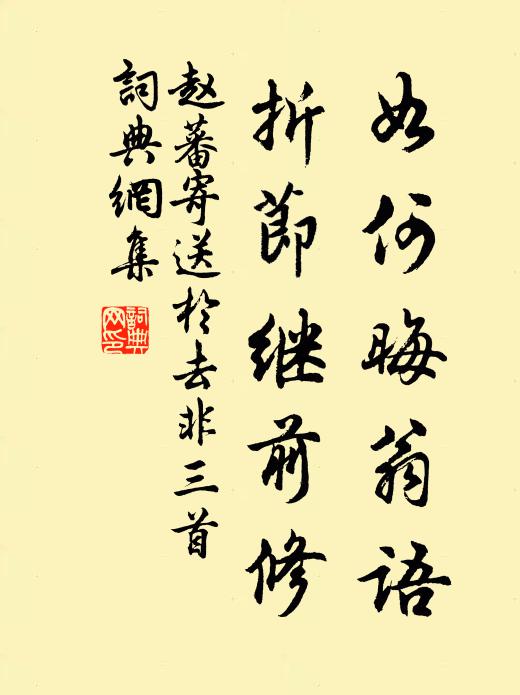 如何晦翁语
折節继前修
赵蕃寄送於去非三首
詞典網集
詞典网印